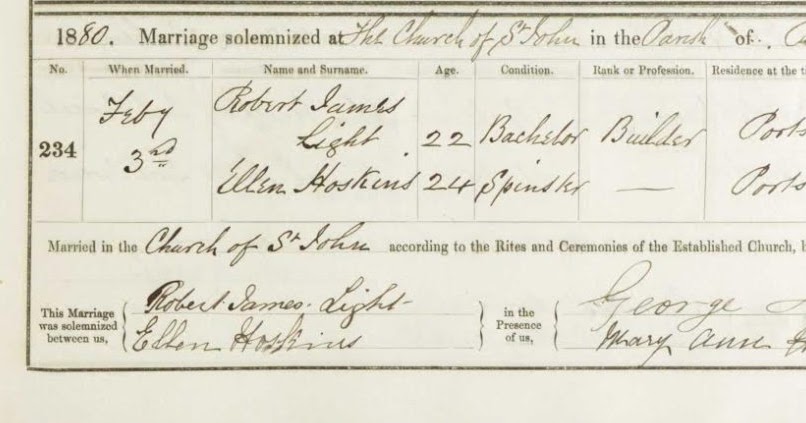 1880. Marriage solemnized at The Church of St John in the Parish of
No. When Married. Name and Surname. Age. Condition. Rank or Profession. Residence at the t
Feby Robert James
234 3rd Light 22 Bachelor Builder Ports
Ellen Hoskins 24 Spinster — Ports
Married in the Church of St John according to the Rites and Ceremonies of the Established Church,
This Marriage was solemnized between us, Robert James Light in the Presence of us, George
Ellen Hoskins Mary Ann